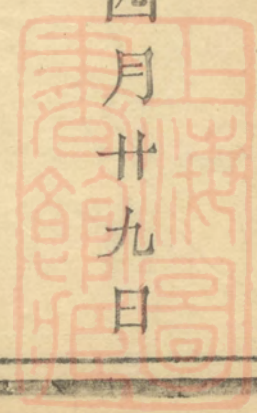 四月廿九日
上海圖
書館藏